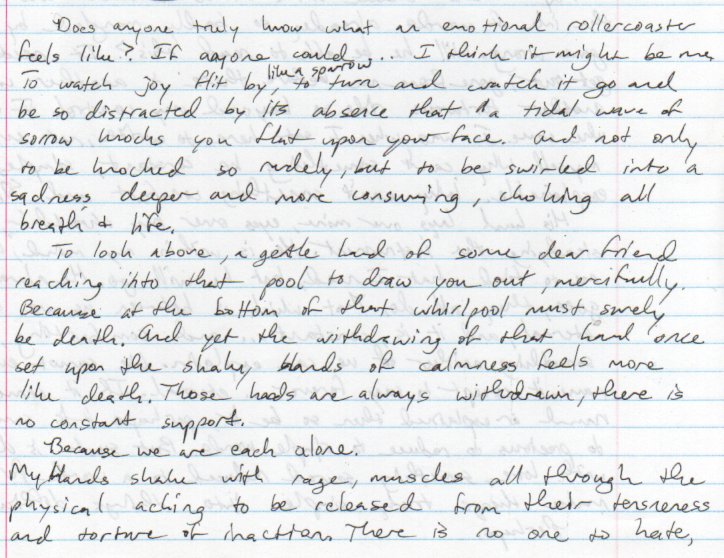 Does anyone truly know what an emotional rollercoaster
feels like? If anyone could... I think it might be me.
like a sparrow
To watch joy flit by, to turn and watch it go and
be so distracted by its absence that a tidal wave of
sorrow knocks you flat upon your face. And not only
to be knocked so rudely, but to be swirled into a
sadness deeper and more consuming, choking all
breath & life.
To look above, a gentle hand of some dear friend
reaching into that pool to draw you out, mercifully.
Because at the bottom of that whirlpool must surely
be death. And yet the withdrawing of that hand once
set upon the shaky hands of calmness feels more
like death. Those hands are always withdrawn, there is
no constant support.
Because we are each alone.
My hands shake with rage, muscles all through the
physical aching to be released from their tenseness
and torture of inaction. There is no one to hate,